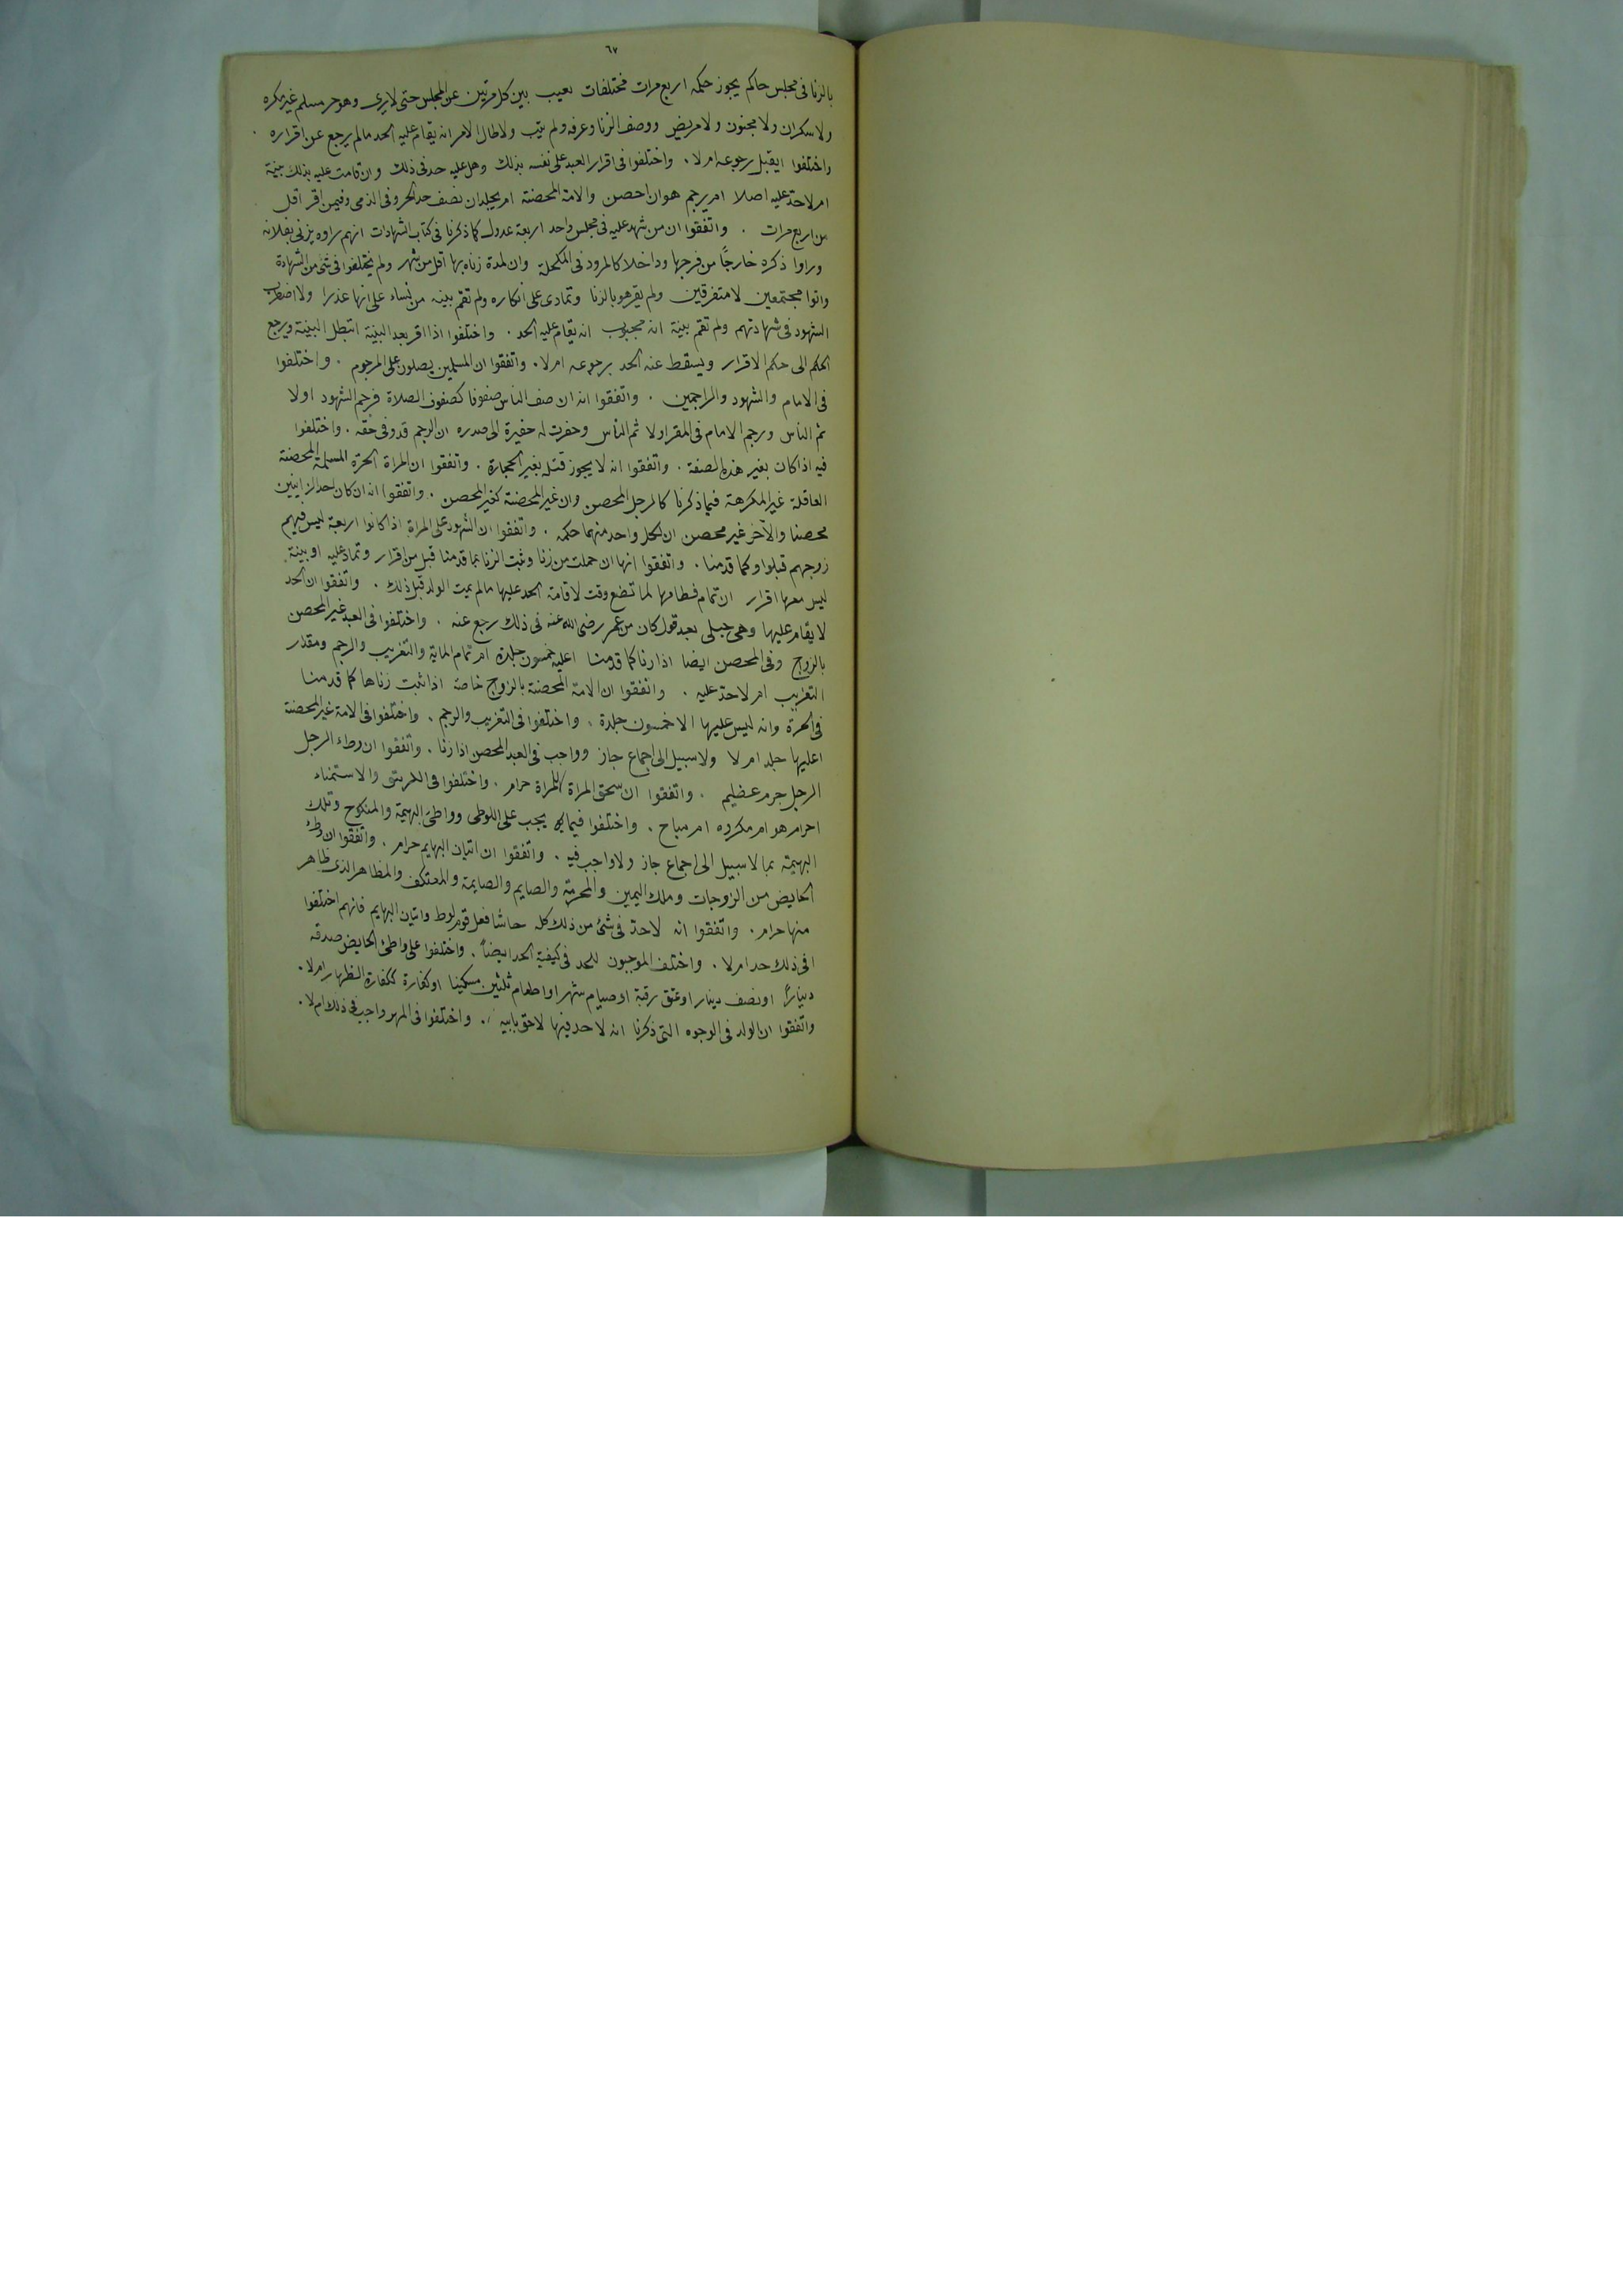 ٦٧
بالزنا فى مجلس حاكم يجوز حكمه اربع مرات مختلفات يغيب بين كل مرتين عن المجلس حتى لا يرى وهو حر مسلم غير مكره
ولا سكران ولا مجنون ولا مريض ووصف الزنا وعرفه ولم يتب ولا طال الامر انه يقام عليه الحد مالم يرجع عن اقراره .
واختلفوا ايقبل رجوعه ام لا . واختلفوا فى اقرار العبد على نفسه بذلك وهل عليه حد فى ذلك وان قامت عليه بذلك بينة
ام لا حد عليه اصلا ام يرجم هو ان احصن والامة المحصنة ام يجلدان نصف حد الحر وفى الذمى وفيمن اقر اقل
من اربع مرات . واتفقوا ان من شهد عليه فى مجلس واحد اربعة عدول كما ذكرنا فى كتاب الشهادات انهم راوه يزنى بفلانه
وراوا ذكره خارجًا من فرجها وداخلا كالمرود فى المكحلة وان لمدة زناه بها اقل من شهر ولم يختلفوا فى شئ من الشهادة
واتوا مجتمعين لا متفرقين ولم يقر هو بالزنا وتمادى على انكاره ولم تقم بينه من نساء على انها عذرا ولا اضطرب
الشهود فى شهادتهم ولم تقم بينة انه مجبوب انه يقام عليه الحد . واختلفوا اذا اقر بعد البينة اتبطل البينة ويرجع
الحكم الى حكم الاقرار ويسقط عنه الحد برجوعه ام لا . واتفقوا ان المسلمين يصلون على المرجوم . واختلفوا
فى الامام والشهود والراجمين . واتفقوا انه ان صف الناس صفوفا كصفوف الصلاة فرجم الشهود اولا
ثم الناس ورجم الامام فى المقر اولا ثم الناس وحفرت له حفيرة الى صدره ان الرجم قد وفى حقه . واختلفوا
فيه اذا كان بغير هذه الصفة . واتفقوا انه لا يجوز قتله بغير الحجارة . واتفقوا ان المراة الحرة المسلمة المحصنة
العاقلة غير المكرهة فيما ذكرنا كالرجل المحصن وان غير المحصنة كغير المحصن . واتفقوا انه ان كان احد الزانيين
محصنا والآخر غير محصن ان لكل واحد منهما حكمه . واتفقوا ان الشهود على المراة اذا كانوا اربعة ليس فيهم
زوجهم قبلوا وكما قدمنا . واتفقوا انها ان حملت من زنا وثبت الزنا بما قدمنا قبل من اقرار وتماد عليه او بينة
ليس معها اقرار ان تمام فطامها لما تضع وقت لاقامة الحد عليها مالم يمت الولد قبل ذلك . واتفقوا ان الحد
لا يقام عليها وهى حبلى بعد قول كان من عمر رضى الله عنه فى ذلك رجع عنه . واختلفوا فى العبد غير المحصن
بالزوج وفى المحصن ايضا اذا زنا كما قدمنا اعليه خمسون جلدة ام تمام الماية والتغريب والرجم ومقدار
التغريب ام لا حد عليه . واتفقوا ان الامة المحصنة بالزوج خاصة اذا ثبت زناها كما قدمنا
فى الحرة وانه ليس عليها الا خمسون جلدة . واختلفوا فى التغريب والرجم . واختلفوا فى الامة غير المحصنة
اعليها جلد ام لا ولا سبيل الى اجماع جاز وواجب فى العبد المحصن اذا زنا . واتفقوا ان وطء الرجل
الرجل جرم عظيم . واتفقوا ان سحق المراة للمراة حرام . واختلفوا فى والاستمناء
احرام هو ام مكروه ام مباح . واختلفوا فيما يجب على اللوطى وواطئ البهيمة والمنكوح وتلك
البهيمة بما لا سبيل الى اجماع جاز ولا واجب فيه . واتفقوا ان اتيان البهايم حرام . واتفقوا ان وطئ
الحايض من الزوجات وملك اليمين والمحرمة والصايم والصايمة والمعتكف والمظاهر الذى ظاهر
منها حرام . واتفقوا انه لا حد فى شئ من ذلك كله حاشا فعل قوم لوط واتيان البهايم فانهم اختلفوا
افى ذلك حد ام لا . واختلف الموجبون للحد فى كيفية الحد ايضاً . واختلفوا على واطئ الحايض صدقه
ديناراً او نصف دينار او عتق رقبة او صيام شهر او اطعام ثلثين مسكينا او كفارة ككفارة الظهار ام لا .
واتفقوا ان الولد فى الوجوه التى ذكرنا انه لا حد فيها لاحق بابيه . واختلفوا فى المهر واجب فى ذلك ام لا .